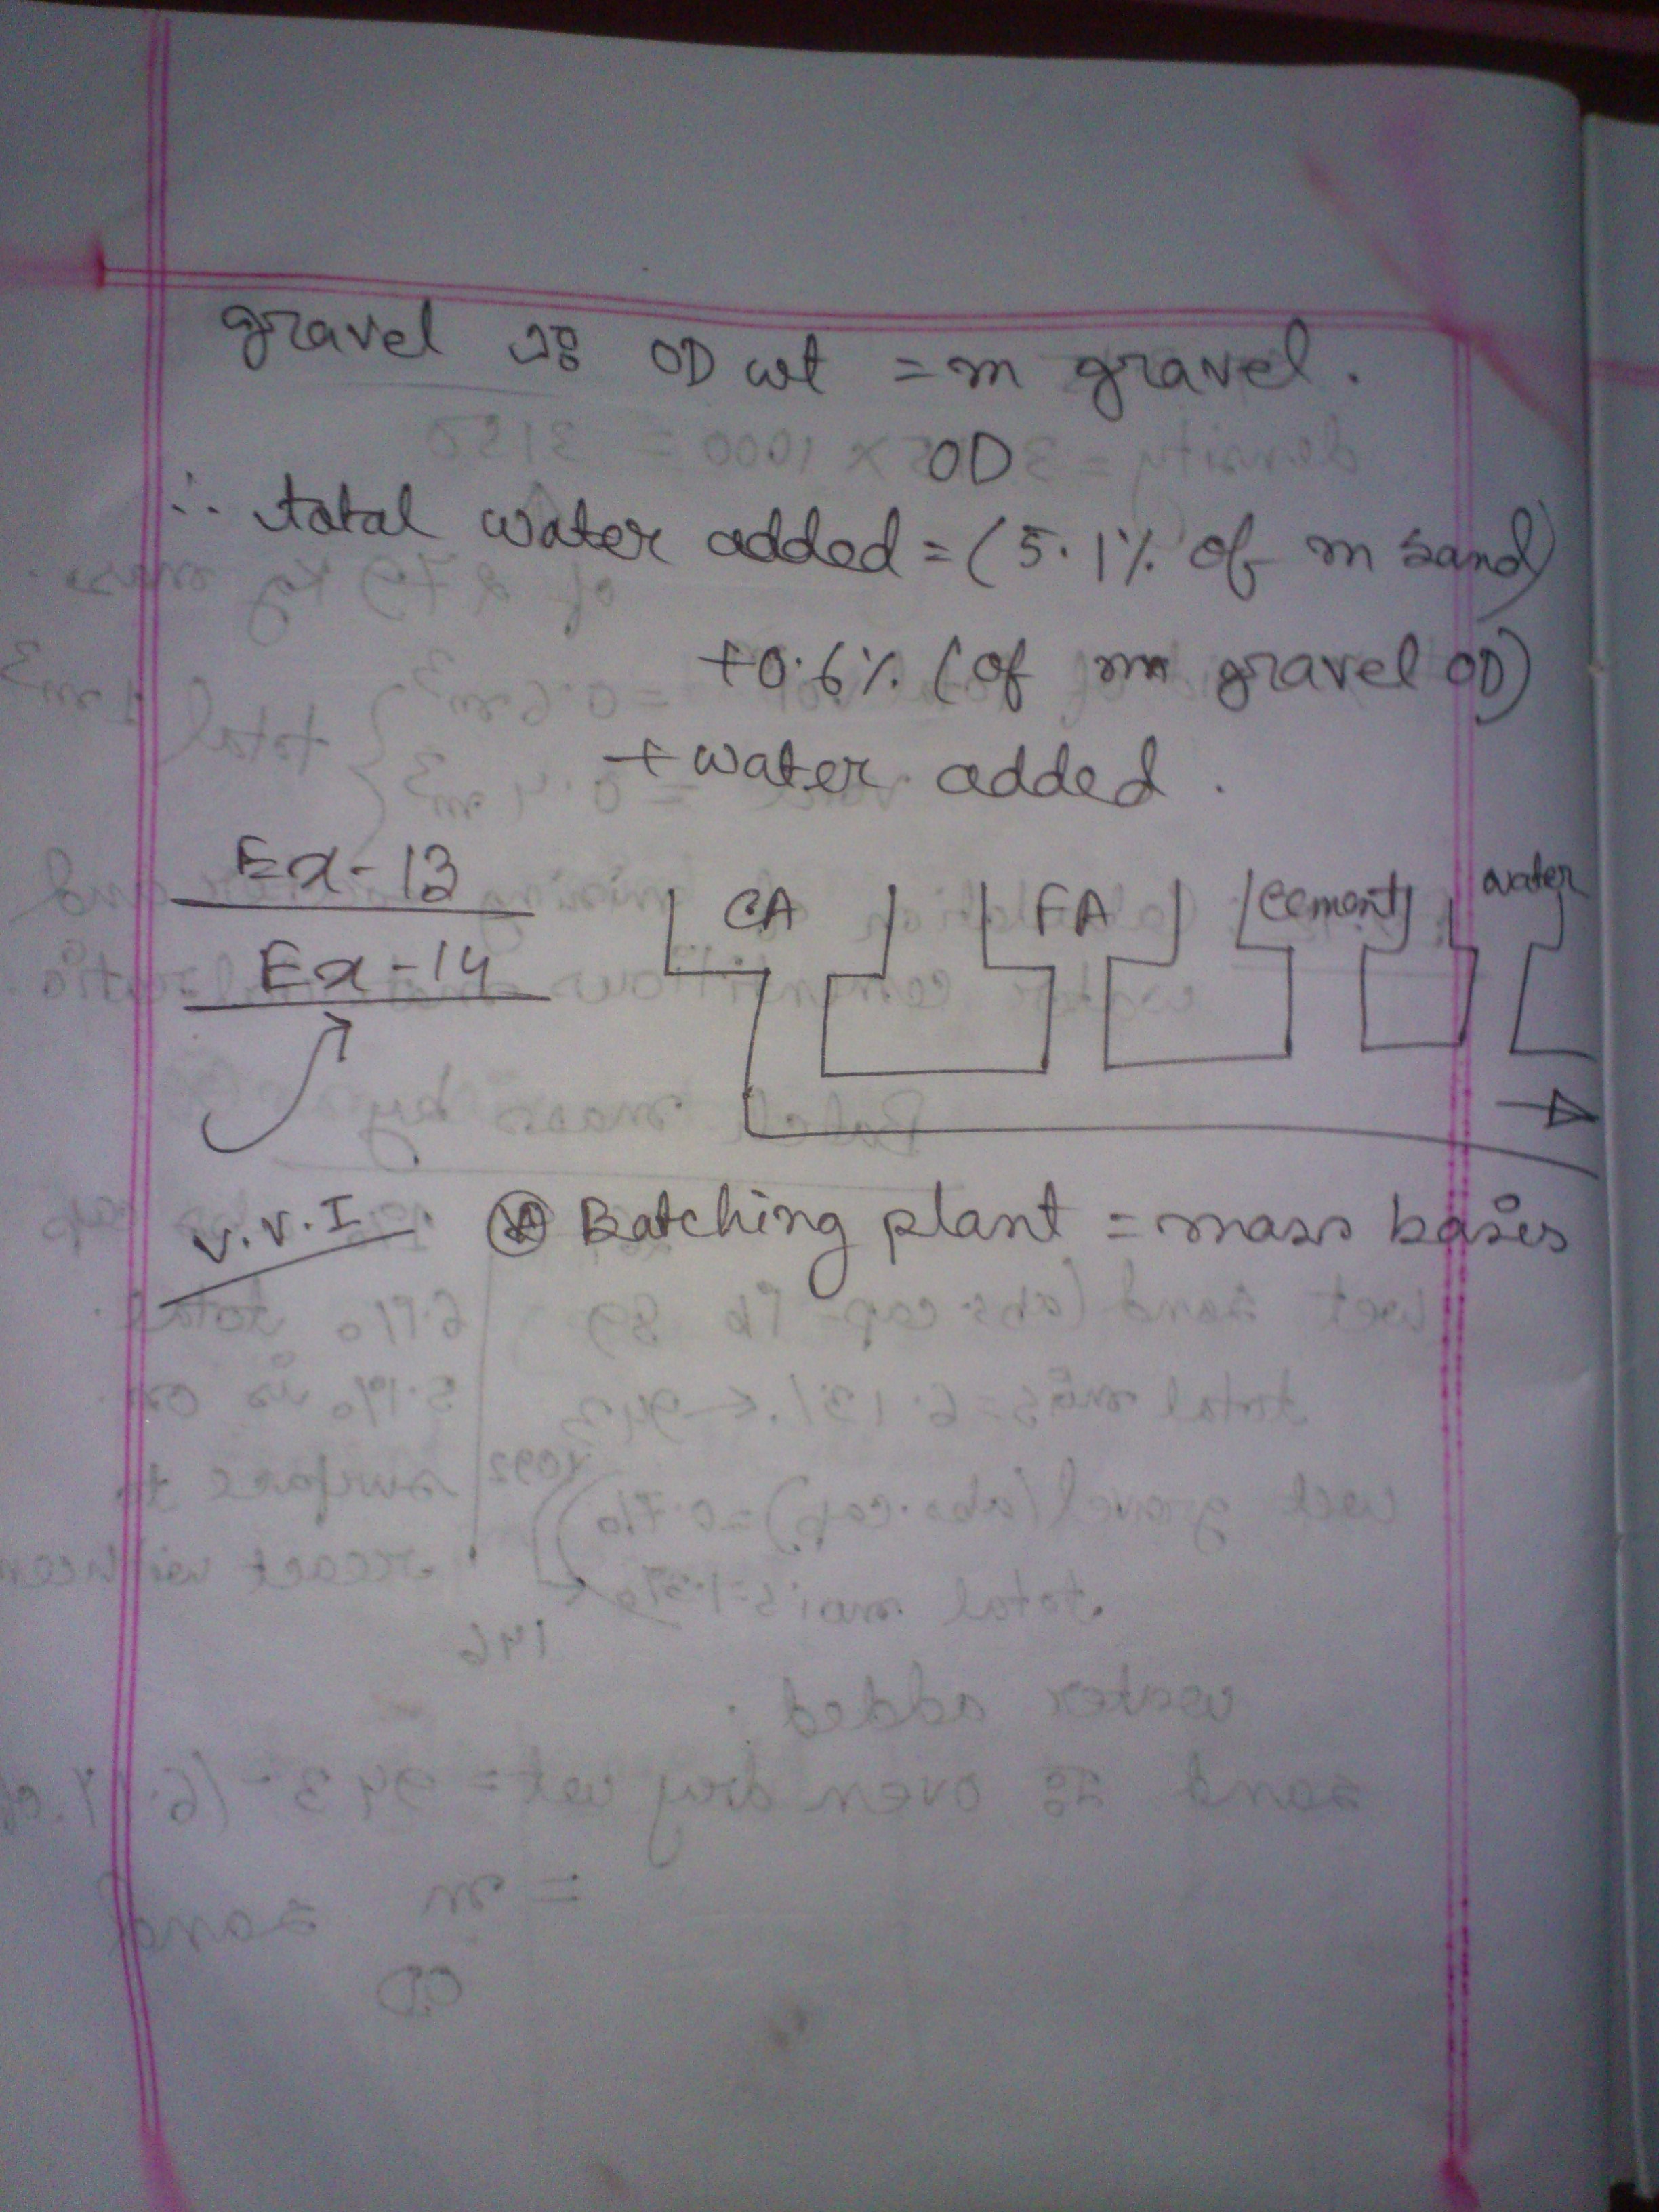 gravel এর OD wt = m gravel.
OD
∴ total water added = (5.1% of m sand)
+0.6% (of m gravel OD)
+ water added.
Ex-13
Ex-14
CA FA cement water
v.v.I Batching plant = mass bases